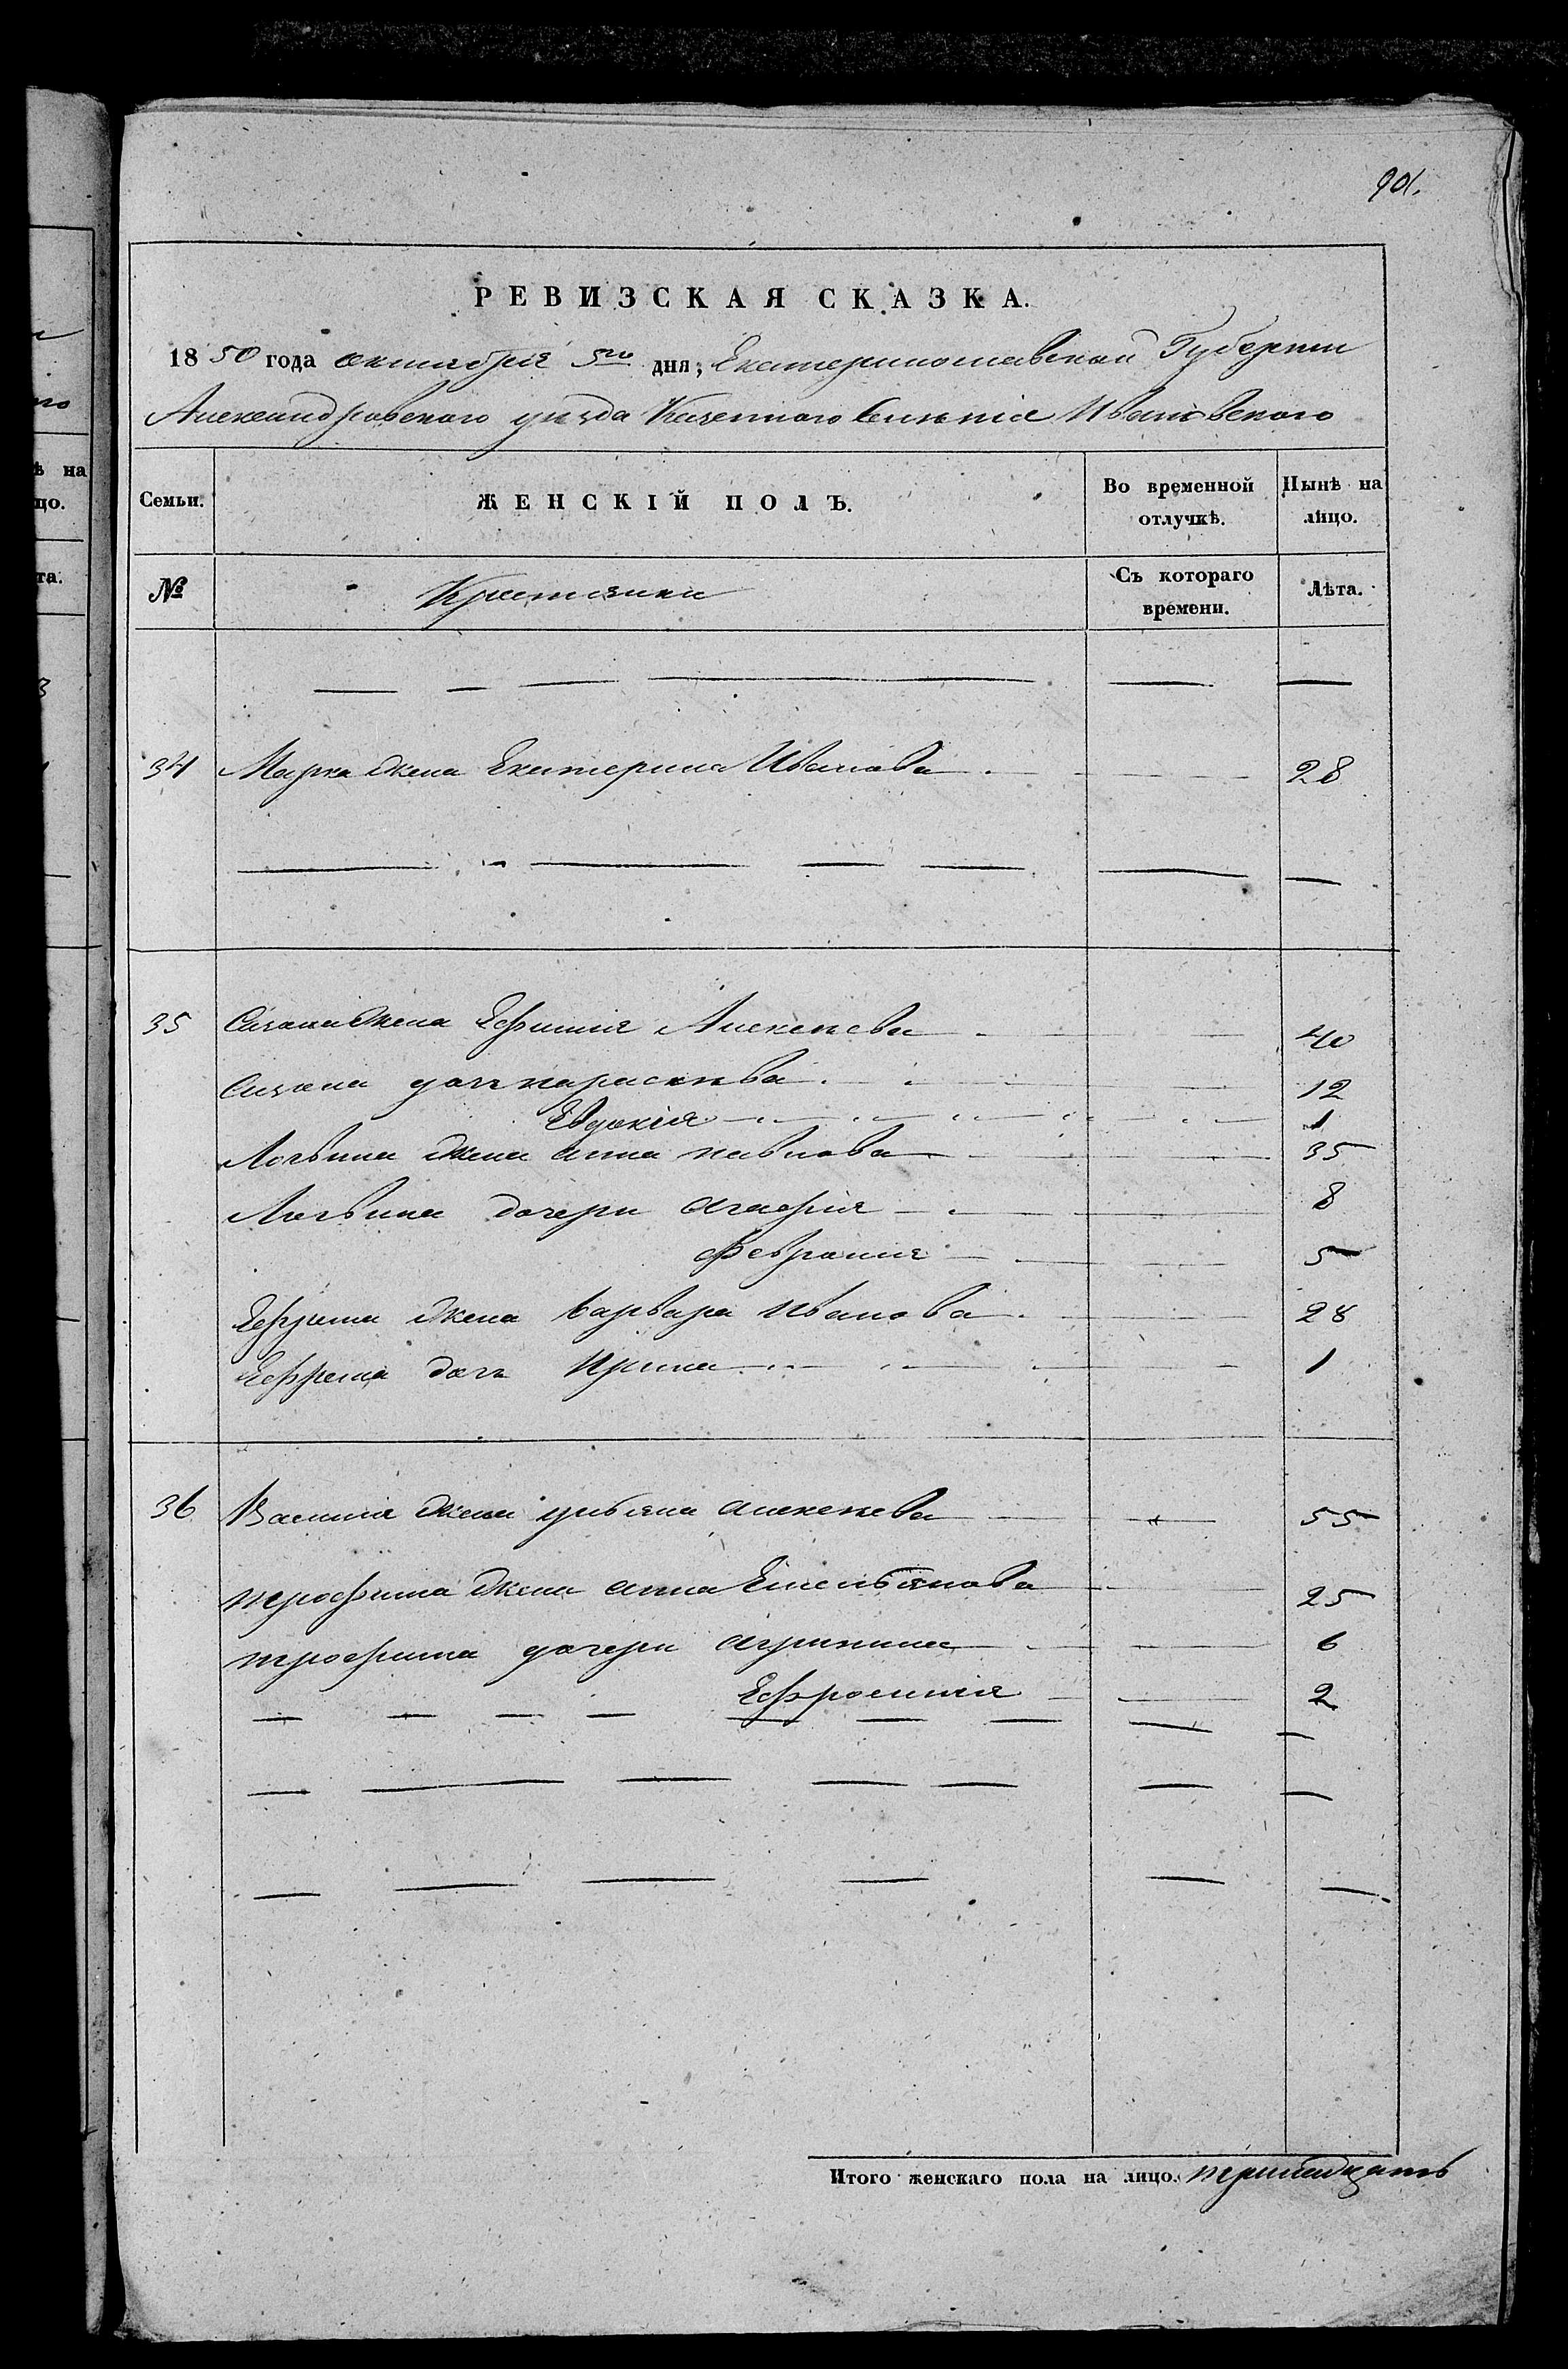 901.
РЕВИЗСКАЯ СКАЗКА.
1850 года октября 5го дня, Екатеринославской Губернии
Александровского уѣзда Казенного селенія Ивановского
Семьи. ЖЕНСКІЙ ПОЛЪ. Во временной отлучкѣ. Нынѣ на лицо.
№ Крестянки Съ котораго времени. Лѣта.
34 Марка жена Екатерина Иванова 28
35 жена Ефимія Алексѣева 40
дочь параскѣва 12
Евдокія 1
Логвина жена анна павлова 35
Логвина дочери агафія 8
Феврания 5
Ефрема жена варвара иванова 28
Ефрема дочь Ирина 1
36 Василія жена ульяна алексѣева 55
трофима жена анна Емельянова 25
трофима дочери агрипина 6
Ефросинія 2
Итого женскаго пола на лицо. тринадцать
ѣ на
цо.
та.